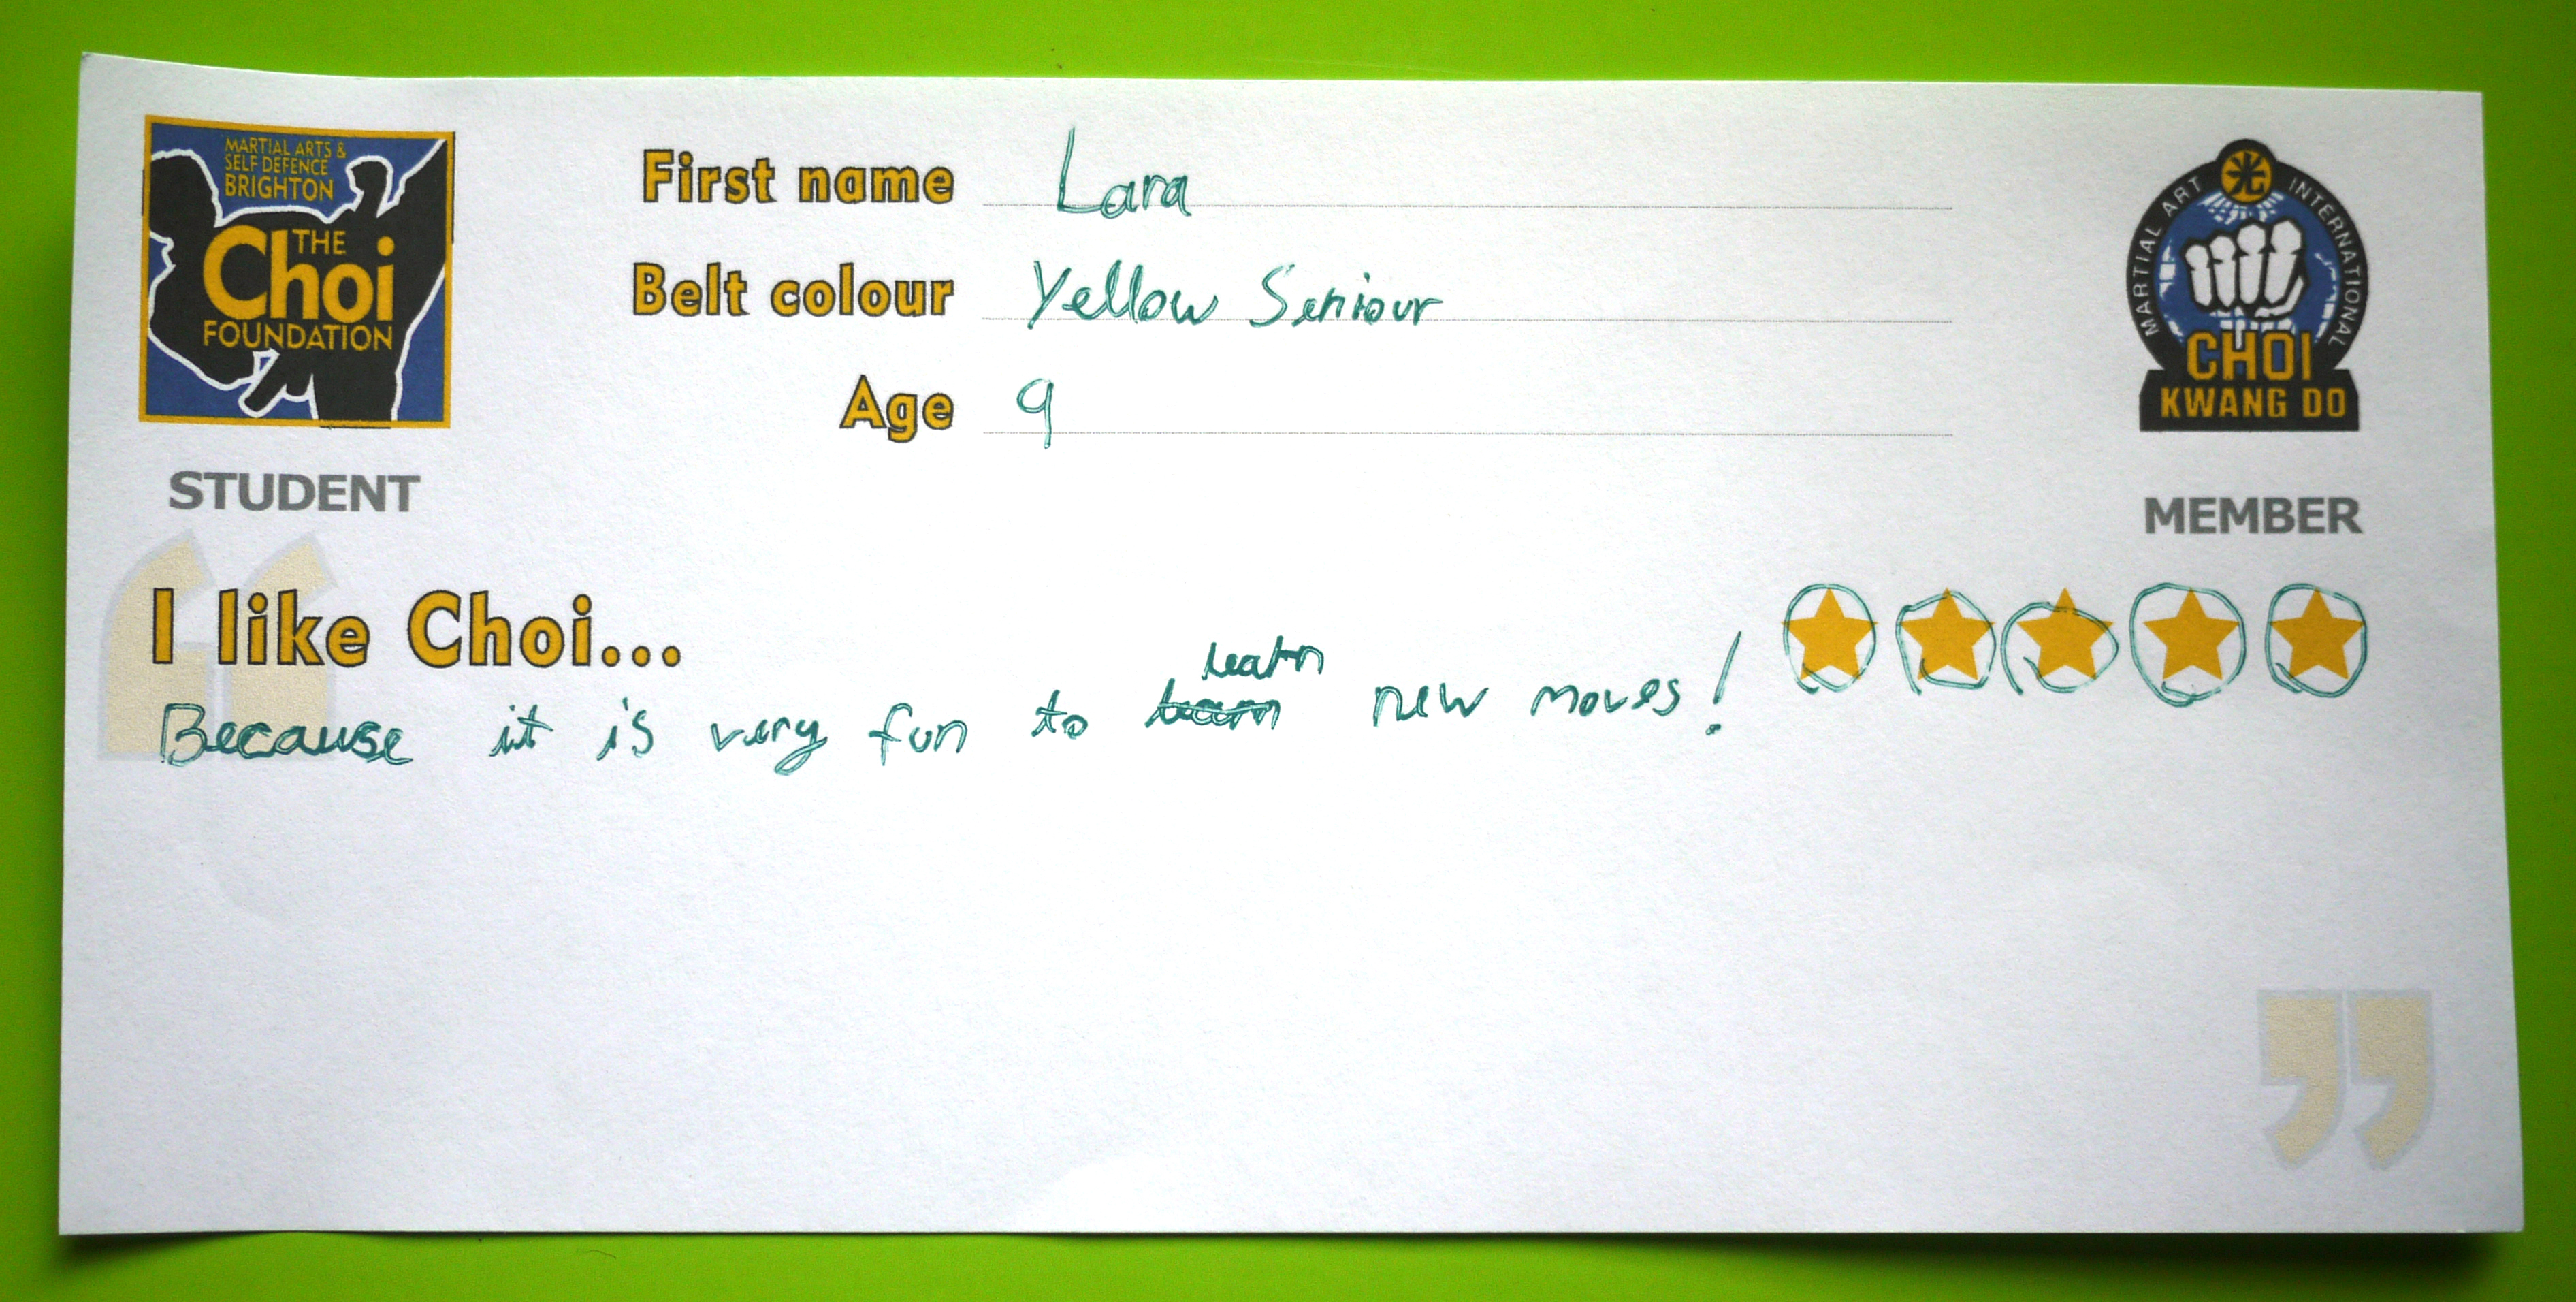 MARTIAL ARTS &
SELF DEFENCE
BRIGHTON
THE
Choi
FOUNDATION
STUDENT
First name Lara
Belt colour Yellow Seniour
Age 9
MARTIAL ART INTERNATIONAL
光
CHOI
KWANG DO
MEMBER
I like Choi...
learn
Because it is very fun to learn new moves!